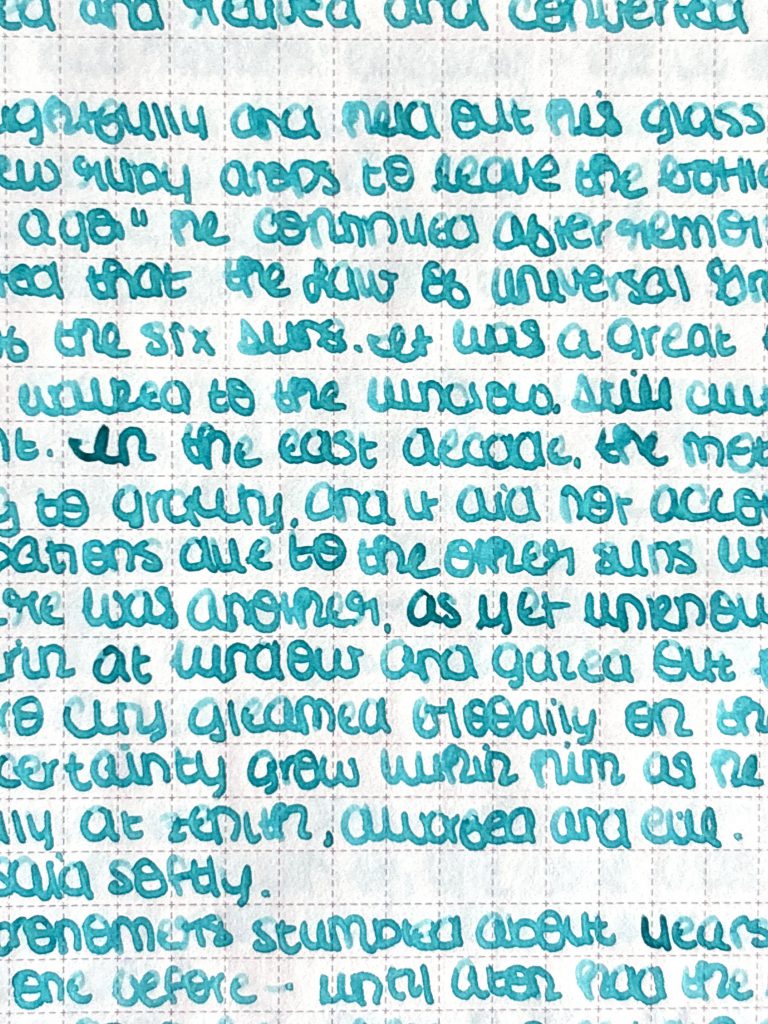 ed and [illegible] and converted
ughtfully and held out his glass
ew ruby drops to leave the bottle
ago" he continued after
ed that the Law of universal Gr
to the six suns. It was a great
walked to the window. Still
nt. In the last decade, the mot
g to gravity, and it did not acco
bations due to the other suns w
ere was another, as yet unknow
rin at window and gazed out
ro city gleamed bloodily on th
certainty grow within him as he
lly at zenith, dwarfed and evil.
said softly.
tronomers stumbled about years
one before - until Aton had the